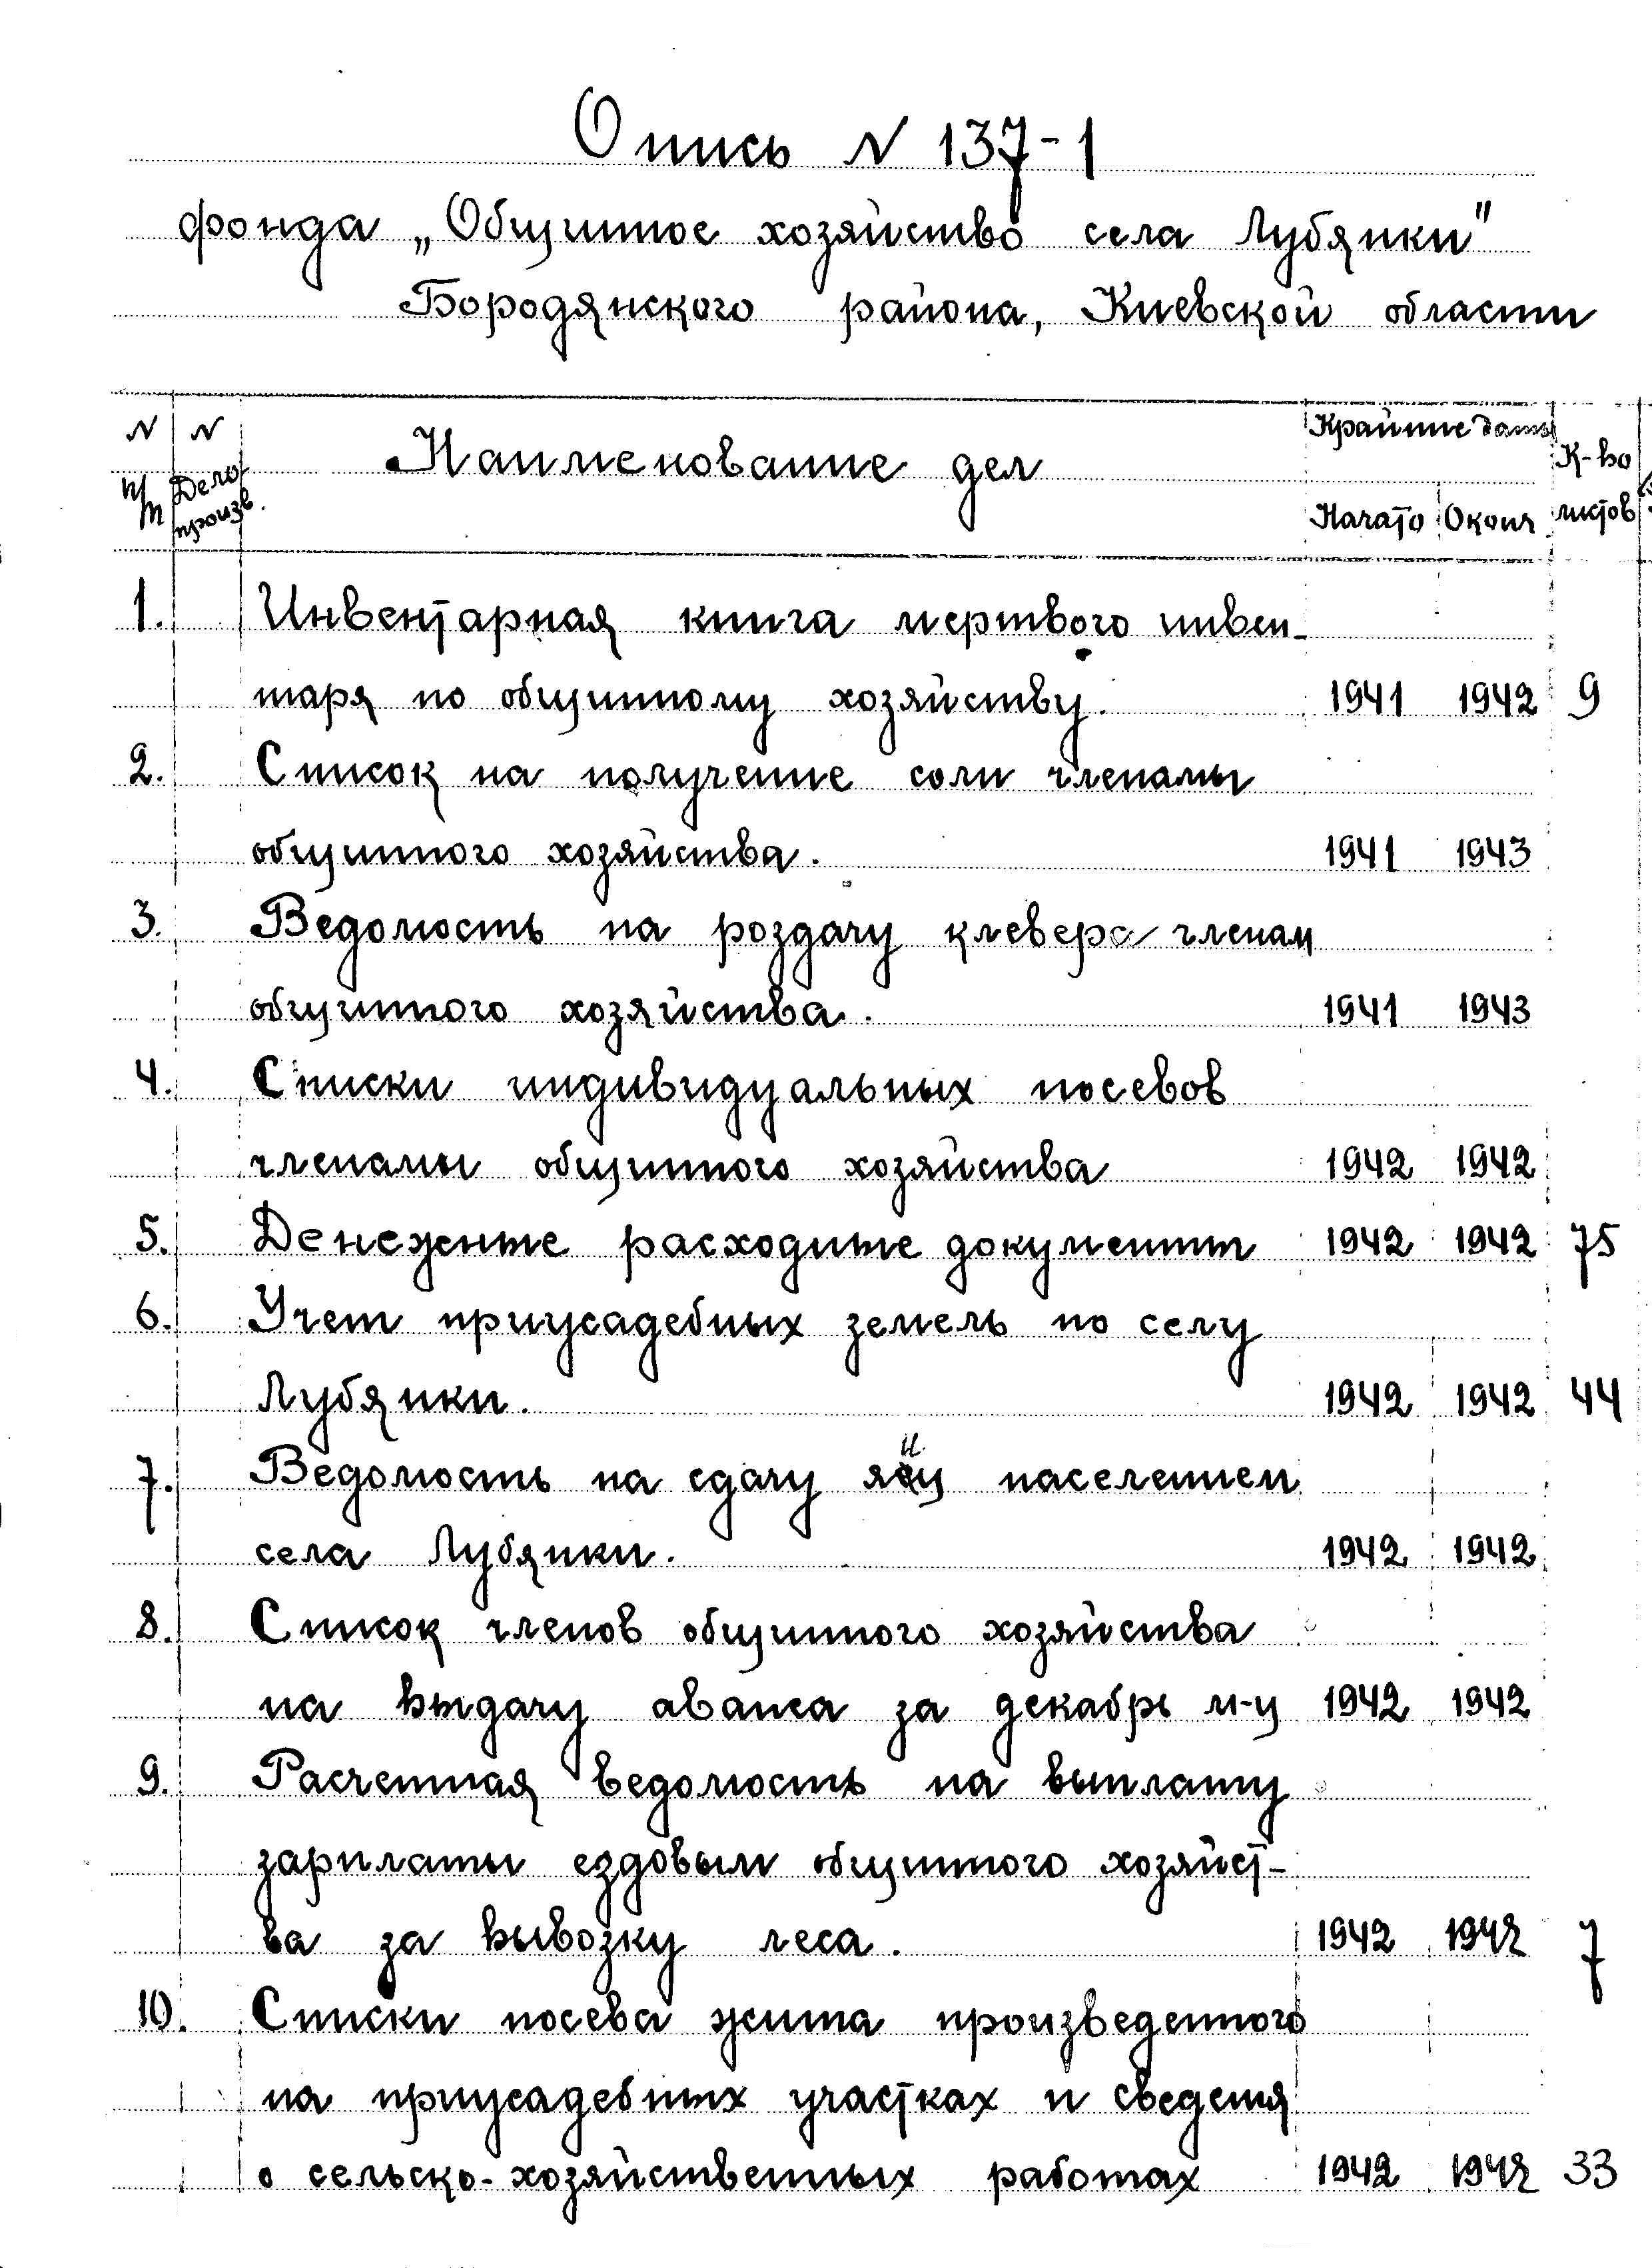 Опись N 137-1
фонда „Общинное хозяйство села Лубянки"
Бородянского района, Киевской области
N N Наименование дел Крайние даты К-во
п/п Дело произв. Начато Оконч листов
1. Инвентарная книга мертвого инвен-
таря по общинному хозяйству. 1941 1942 9
2. Список на получение соли членамы
общинного хозяйства. 1941 1943
3. Ведомость на роздачу клевера членам
общинного хозяйства. 1941 1943
4. Списки индивидуальных посевов
членамы общинного хозяйства 1942 1942
5. Денежные расходные документы 1942 1942 75
6. Учет приусадебных земель по селу
Лубянки. 1942 1942 44
7. Ведомость на сдачу яиц населением
села Лубянки. 1942 1942
8. Список членов общинного хозяйства
на выдачу аванса за декабрь м-ц 1942 1942
9. Расчетная ведомость на выплату
зарплаты ездовым общинного хозяйст-
ва за вывозку леса. 1942 1942 7
10. Списки посева жита произведенного
на приусадебных участках и сведения
о сельско-хозяйственных работах 1942 1942 33